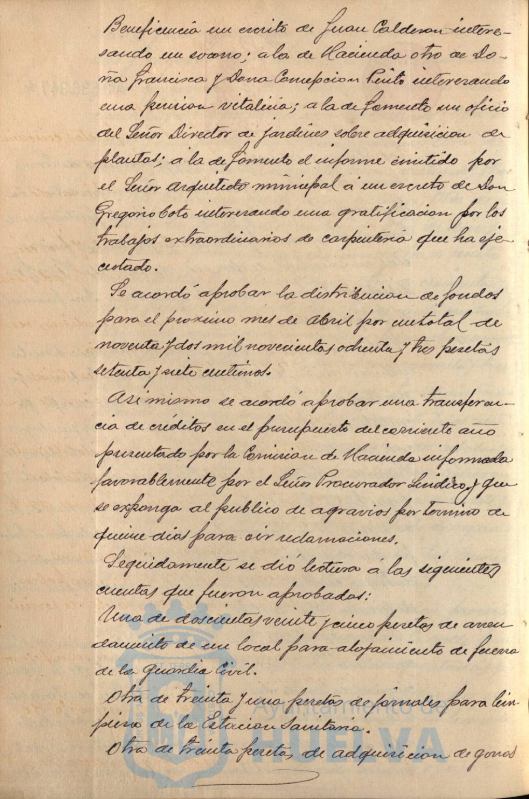 Beneficencia un escrito de Juan Calderon intere-
sando un socorro; a la de Hacienda otro de Do-
ña Francisca y Doña Concepcion Pinto interesando
una pension vitalicia; a la de Fomento un oficio
del Señor Director de jardines sobre adquisicion de
plantas; á la de Fomento el informe emitido por
el Señor Arquitecto municipal á un escrito de Don
Gregorio Coto interesando una gratificacion por los
trabajos extraordinarios de carpinteria que ha eje-
cutado.
Se acordó aprobar la distribucion de fondos
para el proximo mes de Abril por un total de
noventa y dos mil novecientas ochenta y tres pesetas
setenta y siete centimos.
Asimismo se acordó aprobar una transferen-
cia de créditos en el presupuesto del corriente año
presentado por la Comision de Hacienda informada
favorablemente por el Señor Procurador Sindico, y que
se exponga al publico de agravios por termino de
quince dias para oir reclamaciones.
Seguidamente se dió lectura á las siguientes
cuentas que fueron aprobadas:
Una de doscientas veinte y cinco pesetas de arren
damiento de un local para alojamiento de fuerza
de la Guardia Civil.
Otra de treinta y una pesetas de jornales para lim-
pieza de la Estacion Sanitaria.
Otra de treinta pesetas de adquisicion de gorras
Ayuntamiento de
HUELVA